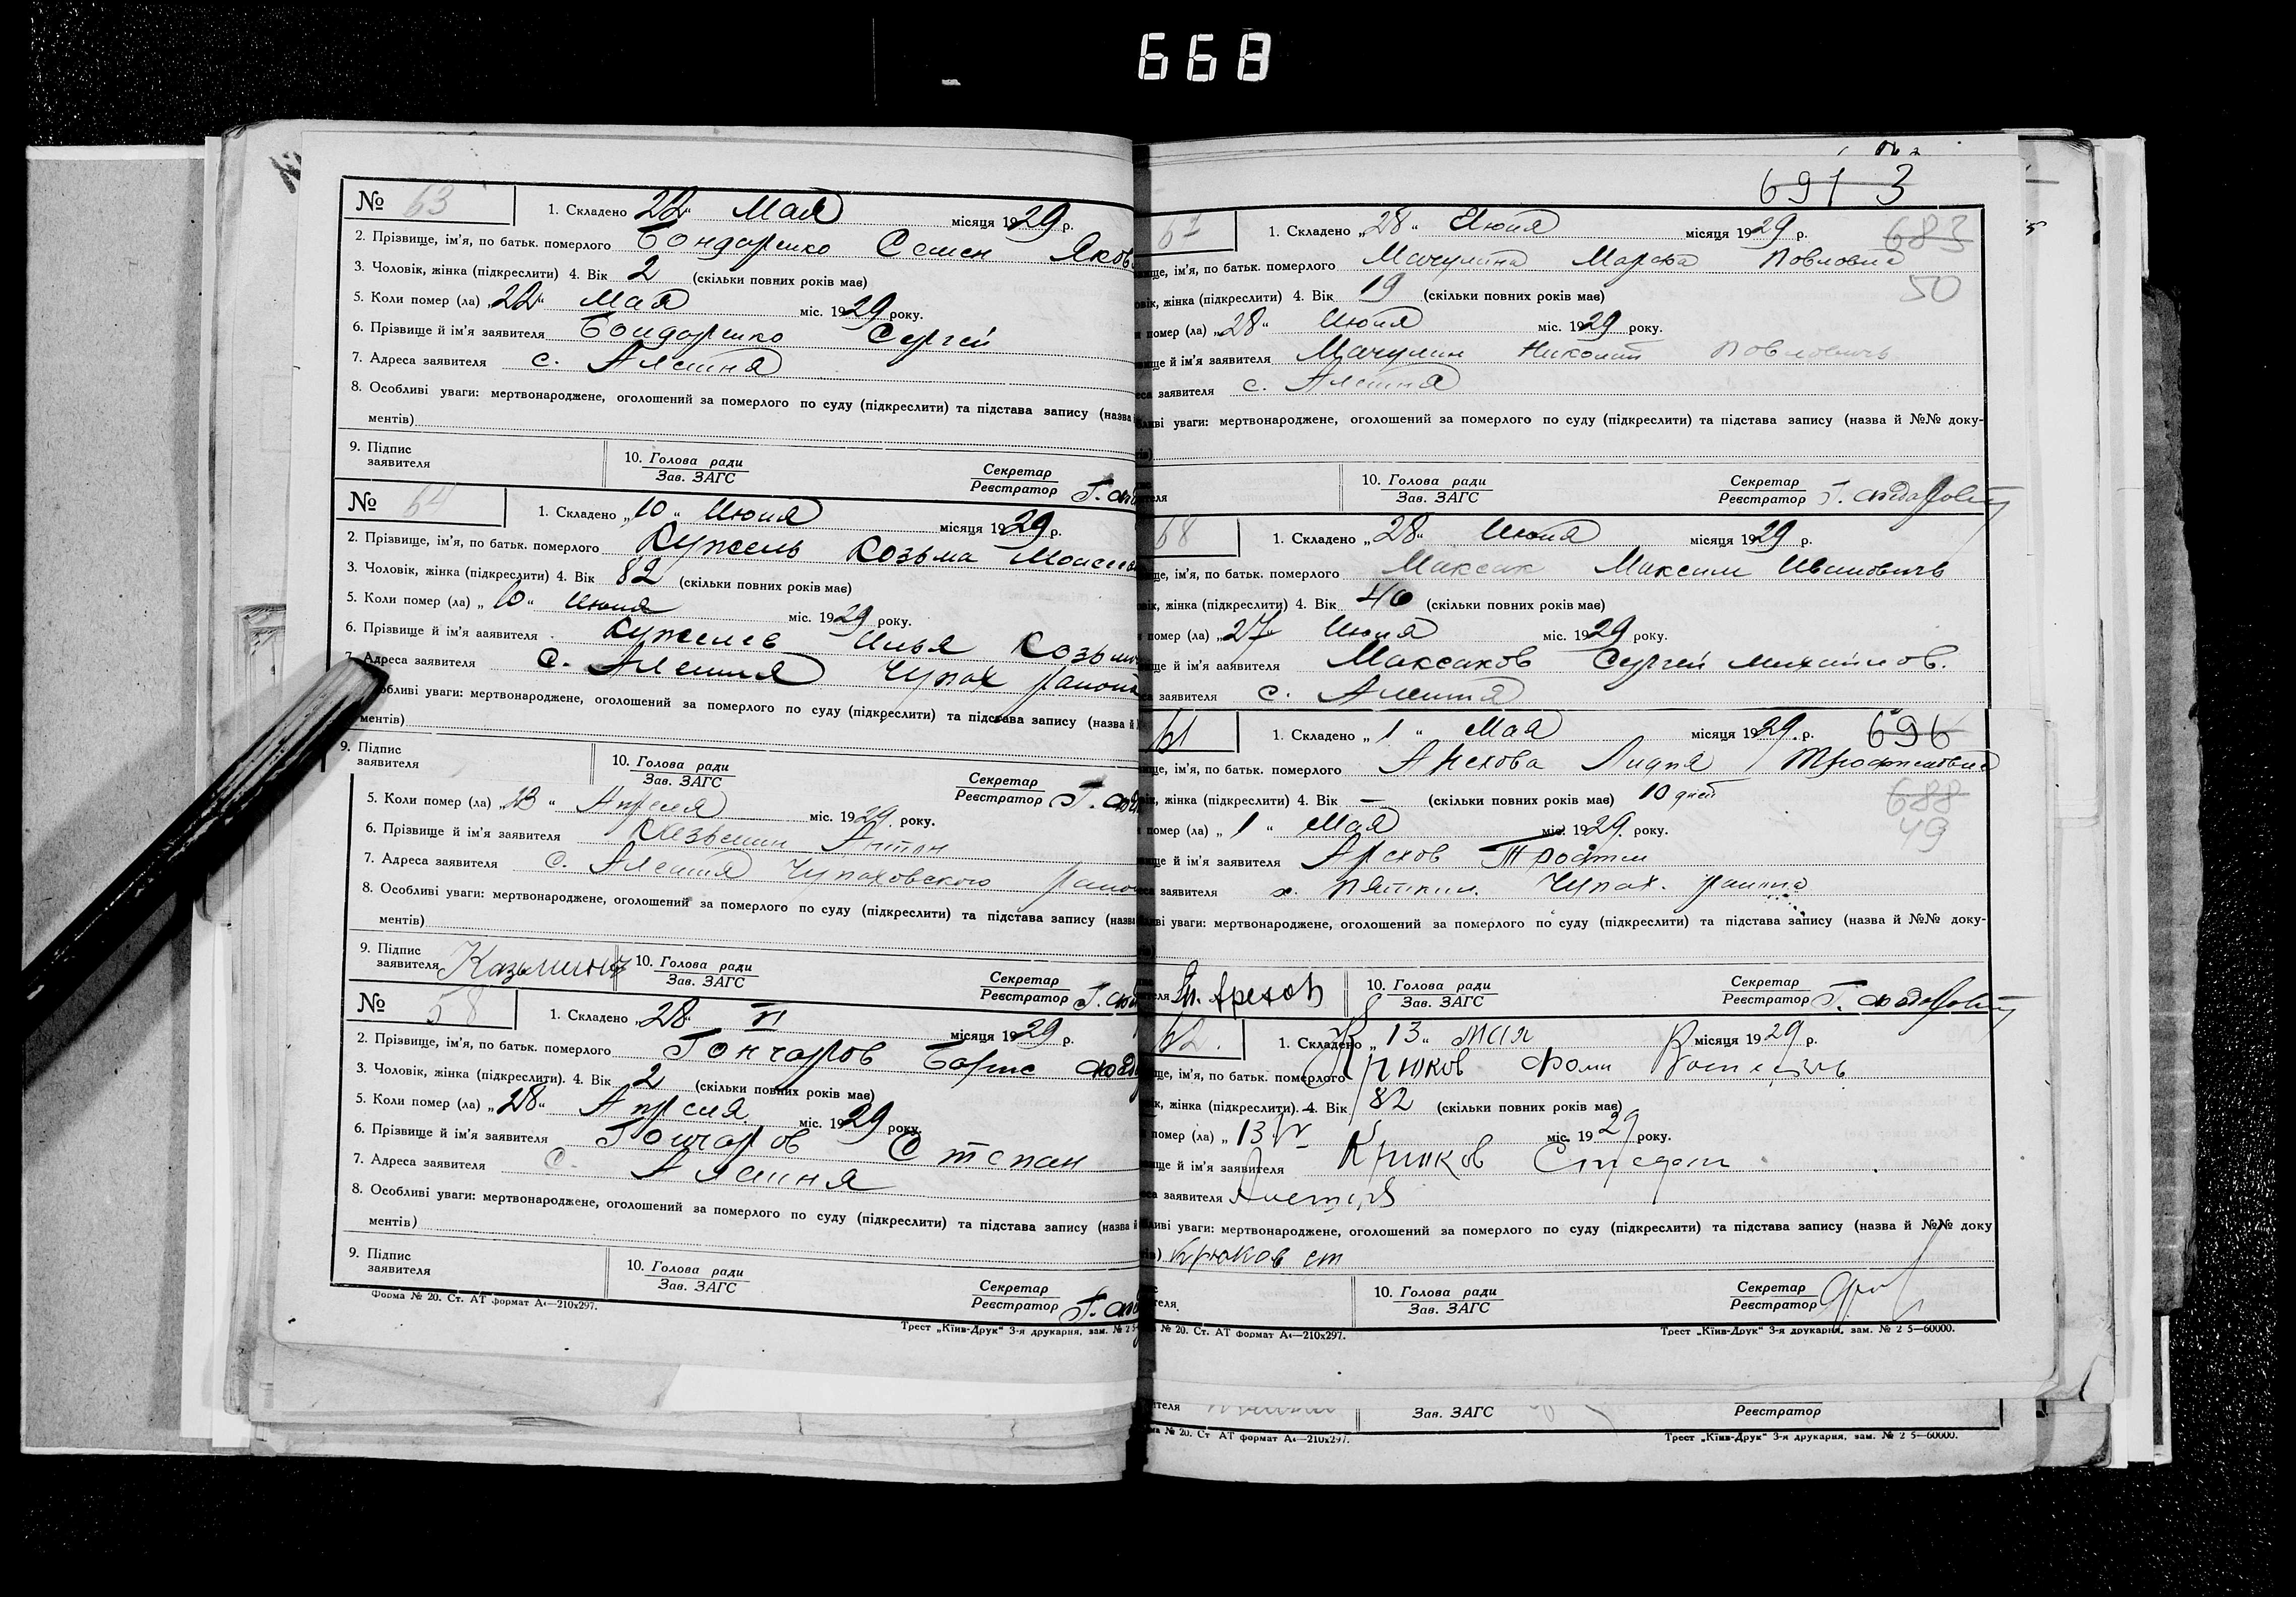 668
№ 63
1. Складено „22“ Мая місяця 1929 р.
2. Прізвище, ім'я, по батьк. померлого Бондаренко Семен Яков
3. Чоловік, жінка (підкреслити) 4. Вік 2 (скільки повних років має)
5. Коли помер (ла) „22“ Мая міс. 1929 року.
6. Прізвище й ім'я заявителя Бондаренко Сергей
7. Адреса заявителя с. Алешня
8. Особливі уваги: мертвонароджене, оголошений за померлого по суду (підкреслити) та підстава запису (назва
ментів)
9. Підпис заявителя
10. Голова ради Зав. ЗАГС
Секретар Реєстратор
№ 64
1. Складено „10“ Июня місяця 1929 р.
2. Прізвище, ім'я, по батьк. померлого Кужель Козьма
3. Чоловік, жінка (підкреслити) 4. Вік 82 (скільки повних років має)
5. Коли помер (ла) „10“ Июня міс. 1929 року.
6. Прізвище й ім'я заявителя Кужелев Илья
7. Адреса заявителя с. Алешня Чупах района
обливі уваги: мертвонароджене, оголошений за померлого по суду (підкреслити) та підстава запису (назва й
ментів)
9. Підпис заявителя
10. Голова ради Зав. ЗАГС
Секретар Реєстратор
5. Коли помер (ла) „23“ Апреля міс. 1929 року.
6. Прізвище й ім'я заявителя Антон
7. Адреса заявителя с. Алешня Чупаховского
8. Особливі уваги: мертвонароджене, оголошений за померлого по суду (підкреслити) та підстава запису (назва
ментів)
9. Підпис заявителя
10. Голова ради Зав. ЗАГС
Секретар Реєстратор
№ 58
1. Складено „28“ місяця 1929 р.
2. Прізвище, ім'я, по батьк. померлого Гончаров Борис
3. Чоловік, жінка (підкреслити). 4. Вік 2 (скільки повних років має)
5. Коли помер (ла) „28“ Апреля міс. 1929 року.
6. Прізвище й ім'я заявителя Гончаров Степан
7. Адреса заявителя с. Алешня
8. Особливі уваги: мертвонароджене, оголошений за померлого по суду (підкреслити) та підстава запису (назва й
ментів)
9. Підпис заявителя
10. Голова ради Зав. ЗАГС
Секретар Реєстратор
Форма № 20. Ст. АТ формат А4—210х297.
Трест „Київ-Друк“ 3-я друкарня, зам. № 2
691 3
67
1. Складено „28“ Июня місяця 1929 р.
683
ім'я, по батьк. померлого Мачулина Марфа Павловна
50
жінка (підкреслити) 4. Вік 19 (скільки повних років має)
помер (ла) „28“ Июня міс. 1929 року.
й ім'я заявителя Мачулин Николай Павлович
заявителя с. Алешня
уваги: мертвонароджене, оголошений за померлого по суду (підкреслити) та підстава запису (назва й №№ доку-
10. Голова ради Зав. ЗАГС
Секретар Реєстратор
68
1. Складено „28“ Июня місяця 1929 р.
ім'я, по батьк. померлого Максак Максим Ивановичь
жінка (підкреслити) 4. Вік 46 (скільки повних років має)
помер (ла) „27“ Июня міс. 1929 року.
й ім'я заявителя Максаков Сергей Михайлов.
заявителя с. Алешня
61
1. Складено „1“ Мая місяця 1929 р.
696
ім'я, по батьк. померлого Арехова Лидия
жінка (підкреслити) 4. Вік — (скільки повних років має) 10 дней
688
49
помер (ла) „1“ Мая міс. 1929 року.
й ім'я заявителя Арехов
заявителя х. Чупах. района
уваги: мертвонароджене, оголошений за померлого по суду (підкреслити) та підстава запису (назва й №№ доку-
Арехов
10. Голова ради Зав. ЗАГС
Секретар Реєстратор
62.
1. Складено „13“ мая місяця 1929 р.
ім'я, по батьк. померлого Крюков Фома
жінка (підкреслити). 4. Вік 82 (скільки повних років має)
помер (ла) „13 V міс. 1929 року.
й ім'я заявителя Крюков
заявителя
уваги: мертвонароджене, оголошений за померлого по суду (підкреслити) та підстава запису (назва й №№ доку
Крюков ст
10. Голова ради Зав. ЗАГС
Секретар Реєстратор
№ 20. Ст. АТ формат А4—210х297.
Трест „Київ-Друк“ 3-я друкарня, зам. № 2 5—60000.
Зав. ЗАГС
Реєстратор
№ 20. Ст АТ формат А4—210х297.
Трест „Київ-Друк“ 3-я друкарня, зам. № 2 5—60000.